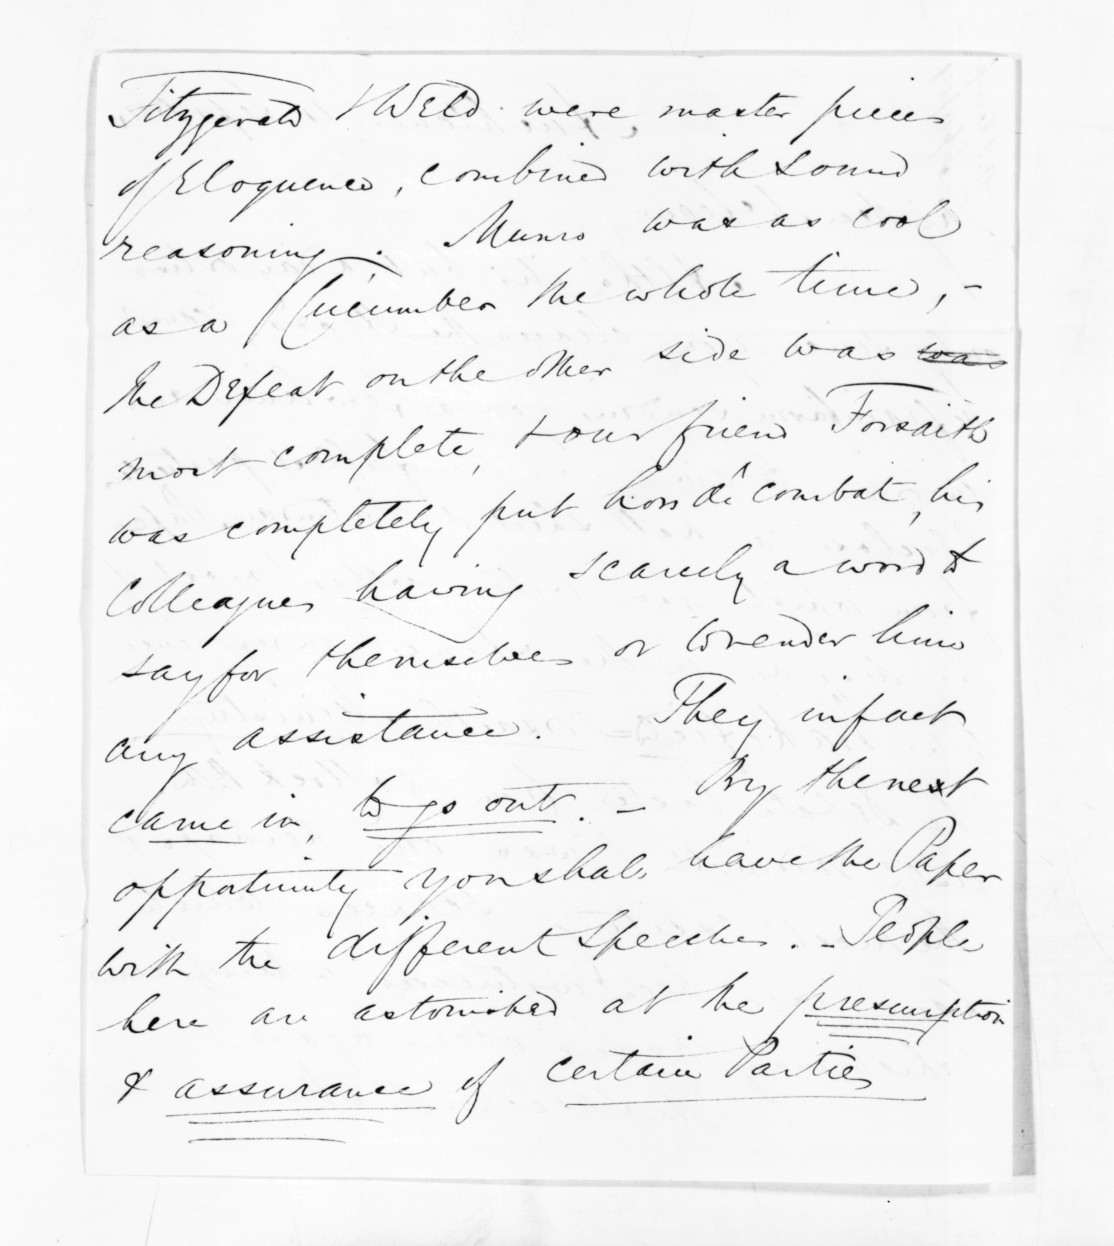 Fitzgerald & Weld were master pieces
of Eloquence, combined with sound
reasoning. Munro was as cool
as a Cucumber the whole time, -
the Defeat on the other side was was
most complete, & our friend Forsaith
was completely put hors de combat, his
Colleagues having scarcely a word to
say for themselves or to render him
any assistance. They in fact
came in, to go out. - By the next
opportunity you shall have the Paper
with the different Speeches. - People
here are astonished at the presumption
& assurance of certain Parties